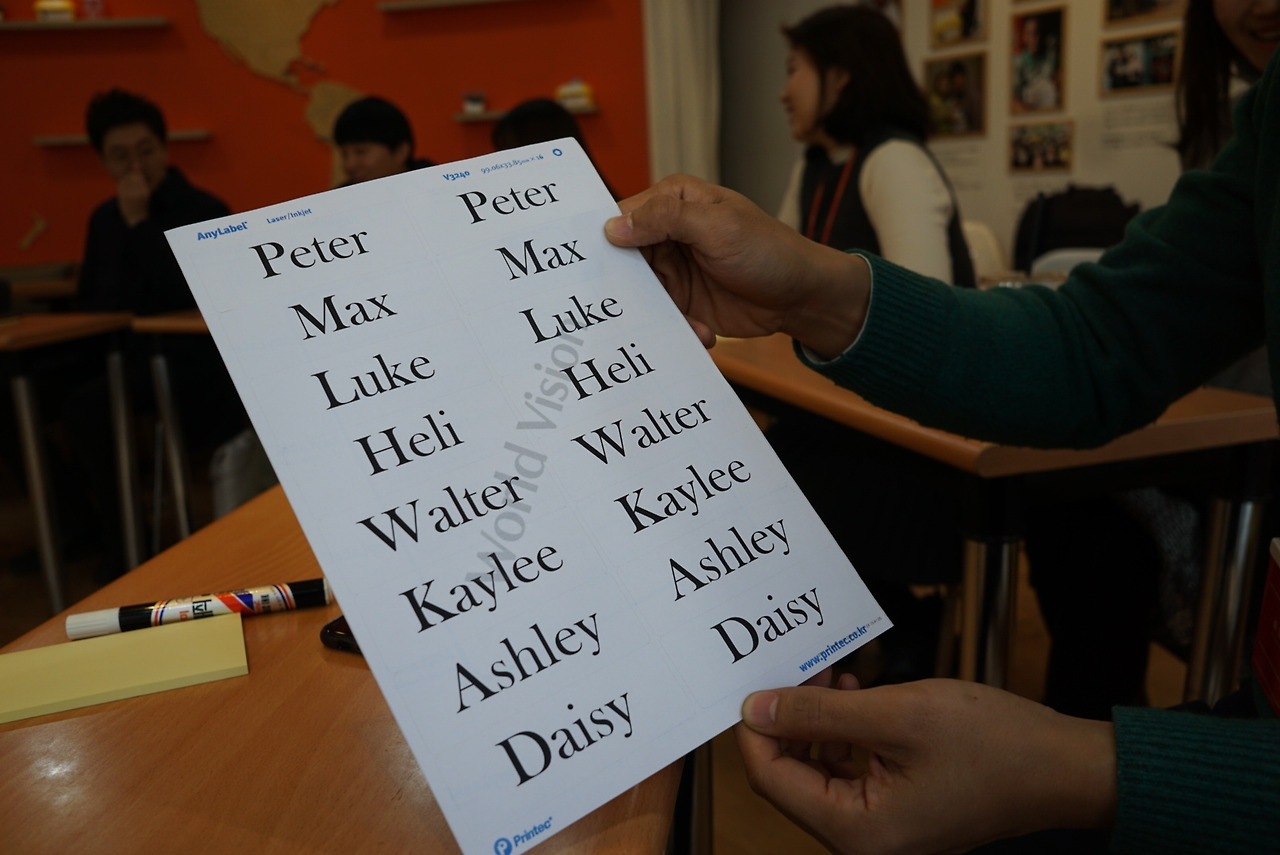 AnyLabel Laser/Inkjet
V3240 99.06X33.85mm X 16
Peter Peter
Max Max
Luke Luke
Heli Heli
Walter Walter
Kaylee Kaylee
Ashley Ashley
Daisy Daisy
World Vision
Printec
www.printec.co.kr